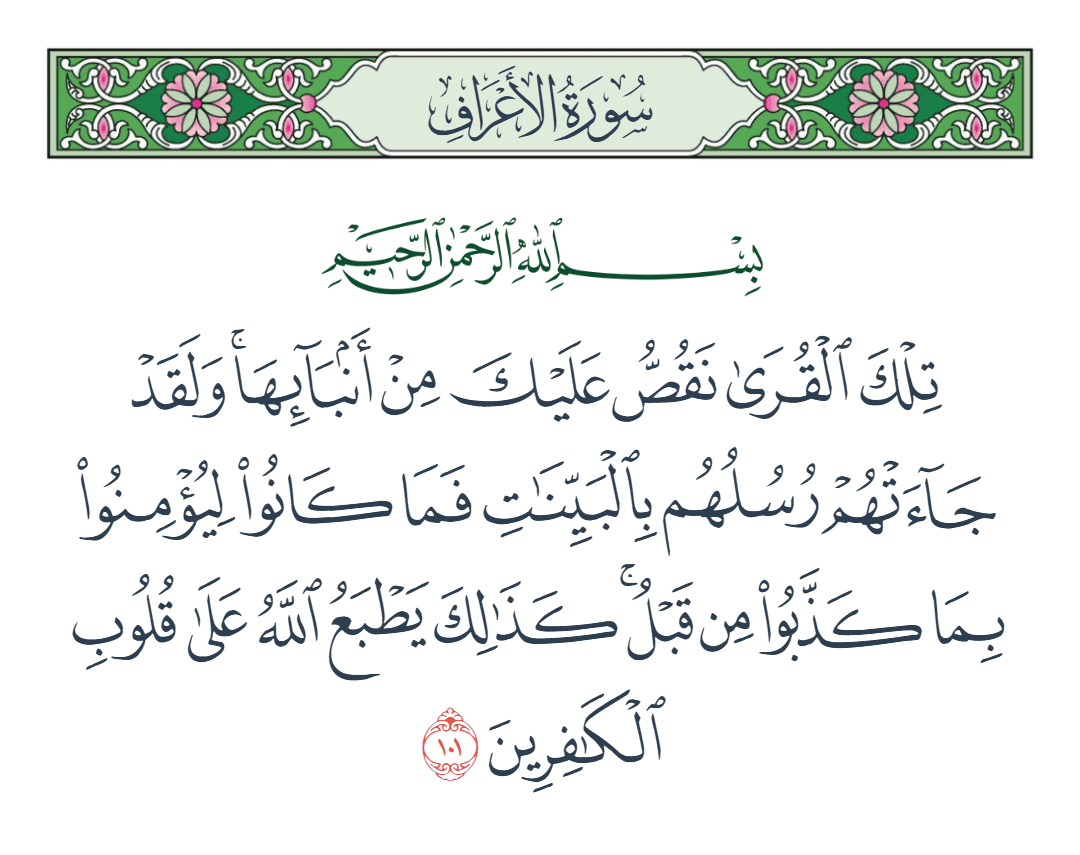 سُورَةُ الأَعْرَافِ
بِسْمِ ٱللَّهِ ٱلرَّحْمَٰنِ ٱلرَّحِيمِ
تِلْكَ ٱلْقُرَىٰ نَقُصُّ عَلَيْكَ مِنْ أَنۢبَآئِهَاۚ وَلَقَدْ
جَآءَتْهُمْ رُسُلُهُم بِٱلْبَيِّنَٰتِ فَمَا كَانُوا۟ لِيُؤْمِنُوا۟
بِمَا كَذَّبُوا۟ مِن قَبْلُۚ كَذَٰلِكَ يَطْبَعُ ٱللَّهُ عَلَىٰ قُلُوبِ
ٱلْكَٰفِرِينَ ١٠١